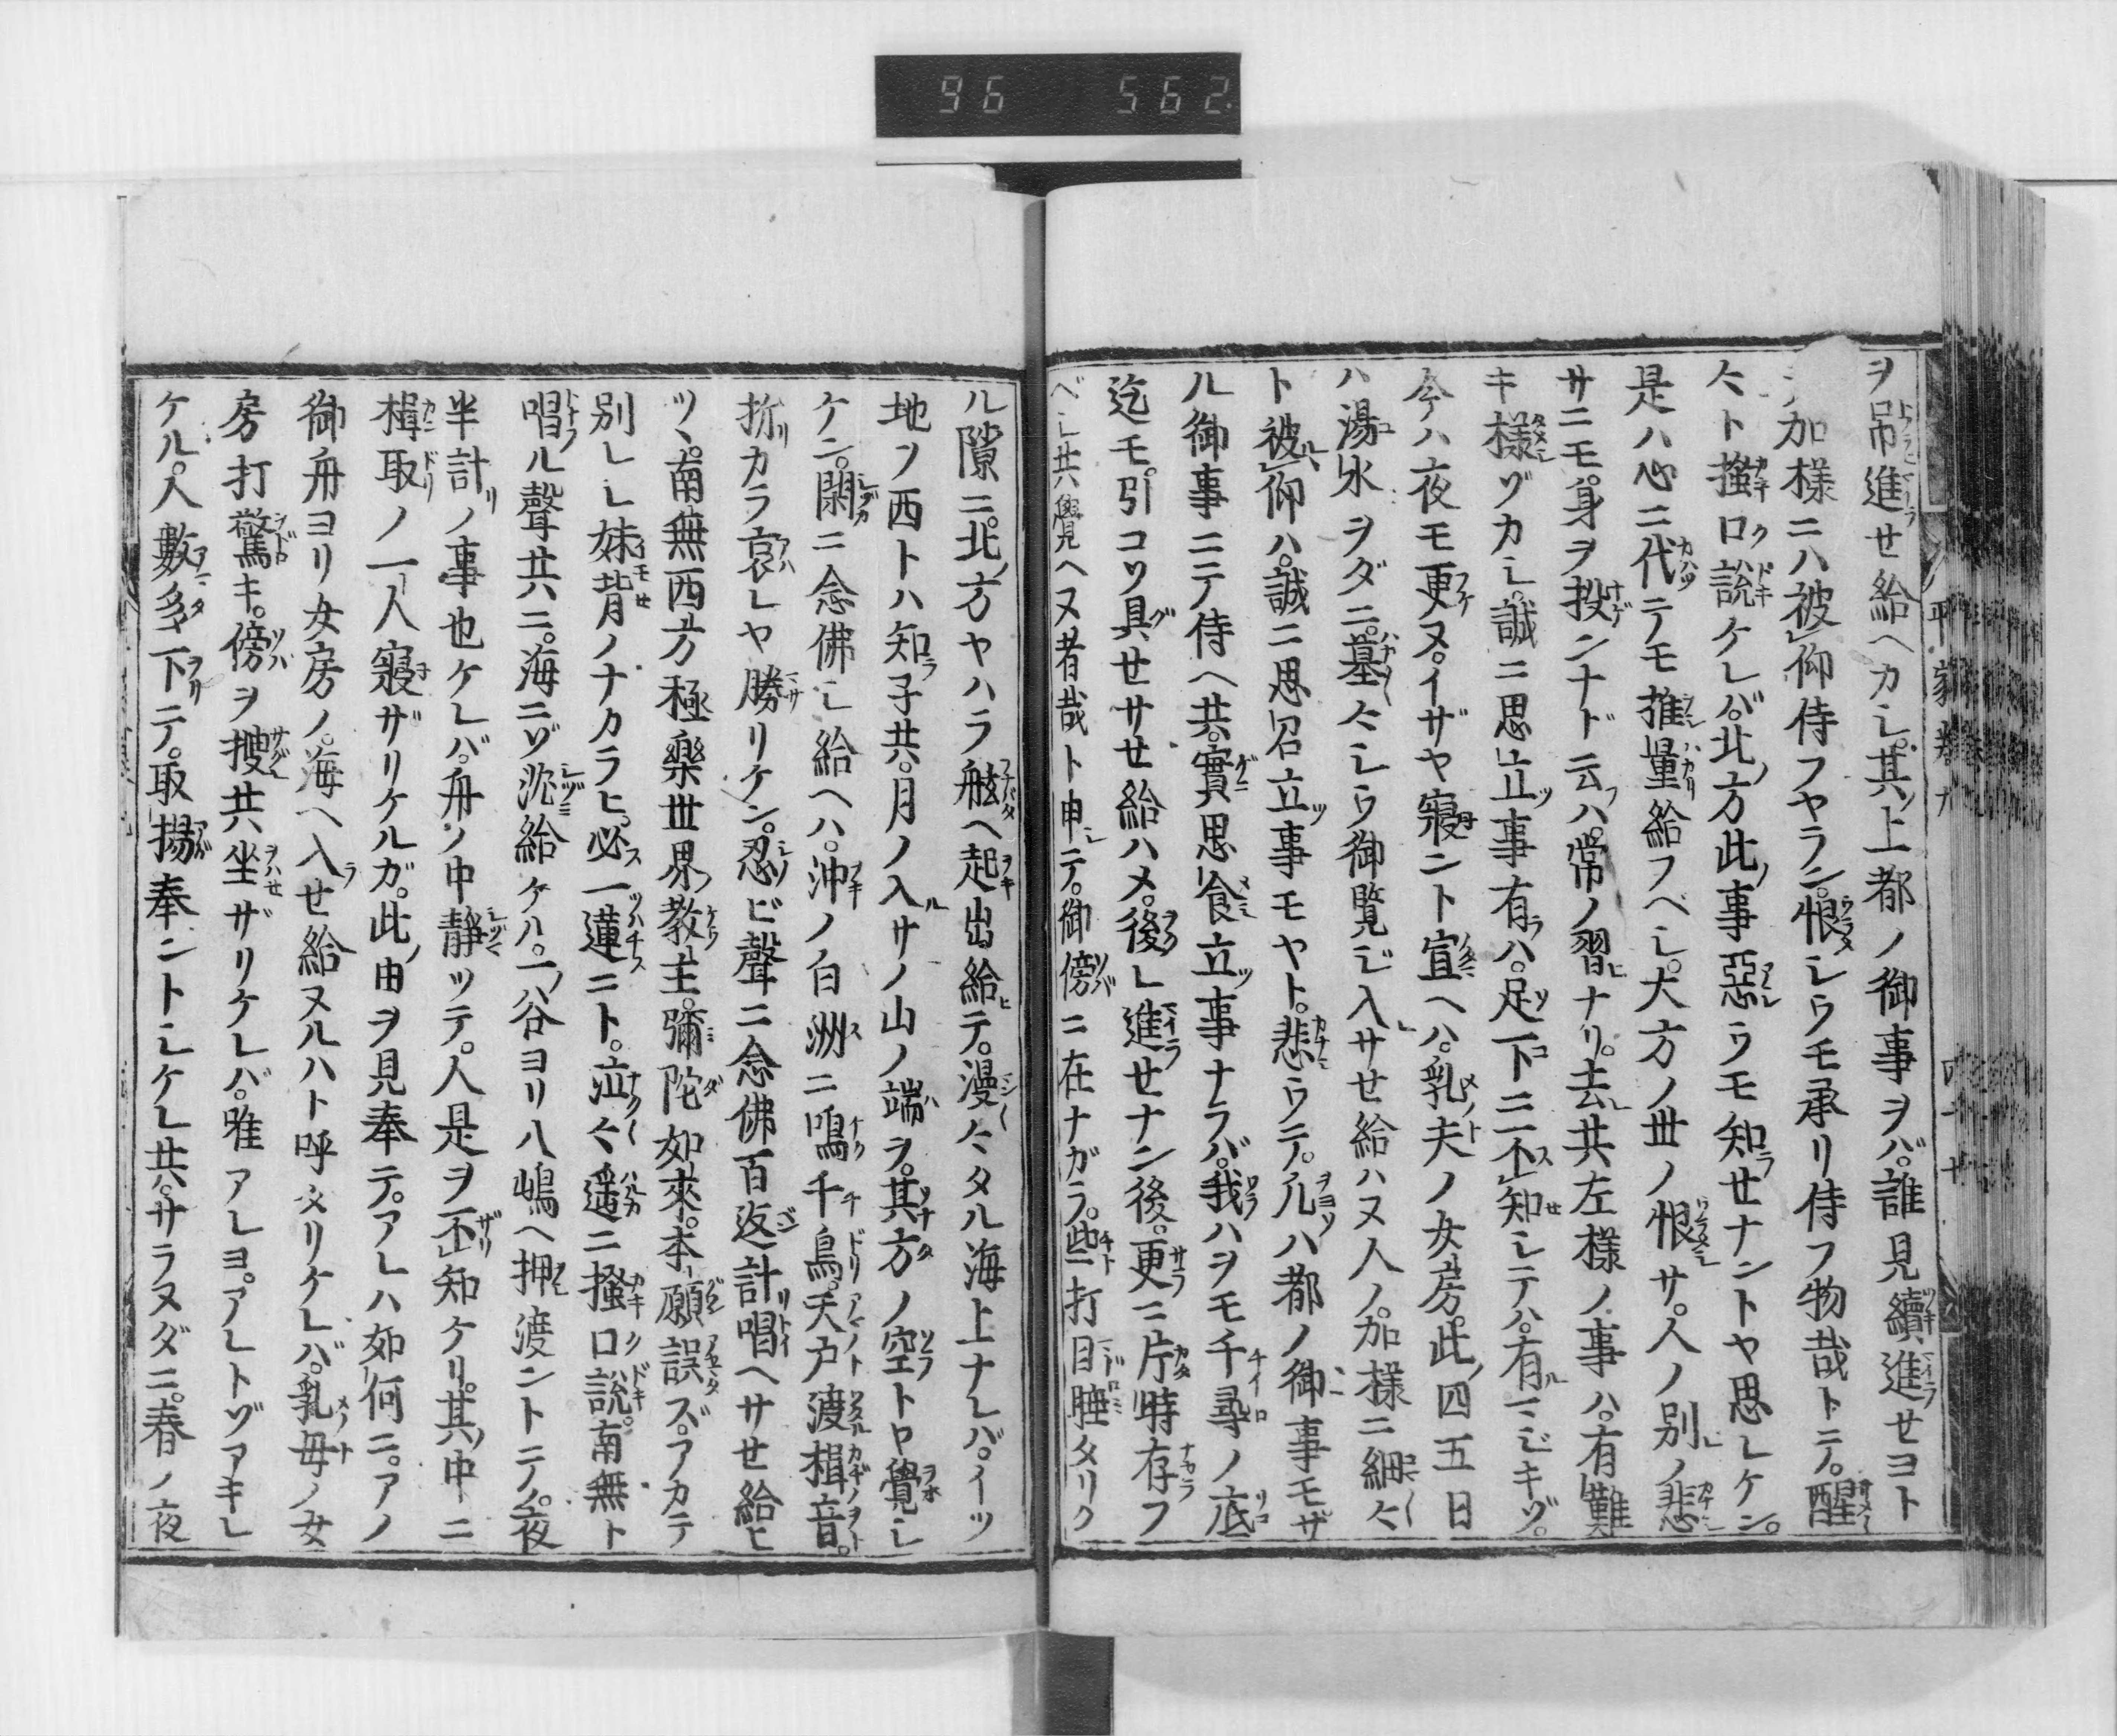 96 562
ヲ吊進セ給ヘカシ。其上都ノ御事ヲバ。誰見續進セヨト
加様ニハ被仰侍フヤラン。恨シウモ承リ侍フ物哉トテ。醒
々ト掻口説ケレバ。北方此事惡ウモ知セナントヤ思レケン。
是ハ心ニ代テモ推量給フベシ。大方ノ世ノ恨サ。人ノ別ノ悲
サニモ。身ヲ投ンナド云ハ。常ノ習ナリ。去共左様ノ事ハ。有難
キ様ゾカシ。誠ニ思立事有ハ。足下ニ不知セシテハ。有マジキゾ。
今ハ夜モ更ヌ。イザヤ寢ント宣ヘハ。乳夫ノ女房。此四五日
ハ湯水ヲダニ。墓々シウ御覽ジ入サセ給ハヌ人ノ。加様ニ細々
ト被仰ハ。誠ニ思召立事モヤト。悲ウテ。凡ハ都ノ御事モザ
ル御事ニテ侍ヘ共。實思食立事ナラバ。我ハヲモ千尋ノ底
迄モ。引コソ具セサセ給ハメ。後レ進セナン後。更ニ片時存フ
ベシ共覺ヘヌ者哉ト申テ。御傍ニ在ナガラ。些打目睡タリク
平家巻九
四十
ル隙ニ。北方ヤハラ舷ヘ起出給テ。漫々タル海上ナレバ。イヅ
地ヲ西トハ知子共。月ノ入サノ山ノ端ヲ。其方ノ空トロ覺シ
ケン。閑ニ念佛シ給ヘハ。沖ノ白洲ニ鳴千鳥。天戸渡楫音。
折カラ哀レヤ勝リケン。忍ビ聲ニ念佛百返計唱ヘサセ給ヒ
ツヽ。南無西方極樂世界教主。彌陀如來。本願誤ズ。アカテ
別レシ妹背ノナカラヒ。必一蓮ニト。泣々遥ニ掻口説。南無ト
唱ル聲共ニ。海ニゾ沈給ケル。一谷ヨリ八嶋ヘ押渡ントテノ。夜
半計ノ事也ケレバ。舟ノ中靜ツテ。人是ヲ不知ケリ。其中ニ
楫取ノ一人寢ザリケルガ。此由ヲ見奉テ。アレハ如何ニ。アノ
御舟ヨリ女房ノ。海ヘ入セ給ヌルハト呼タリケレバ。乳母ノ女
房打驚キ。傍ヲ捜共坐ザリケレバ。唯アレヨ。アレトゾアキレ
ケル。人數多下テ。取揚奉ントシケレ共。サラヌダニ。春ノ夜